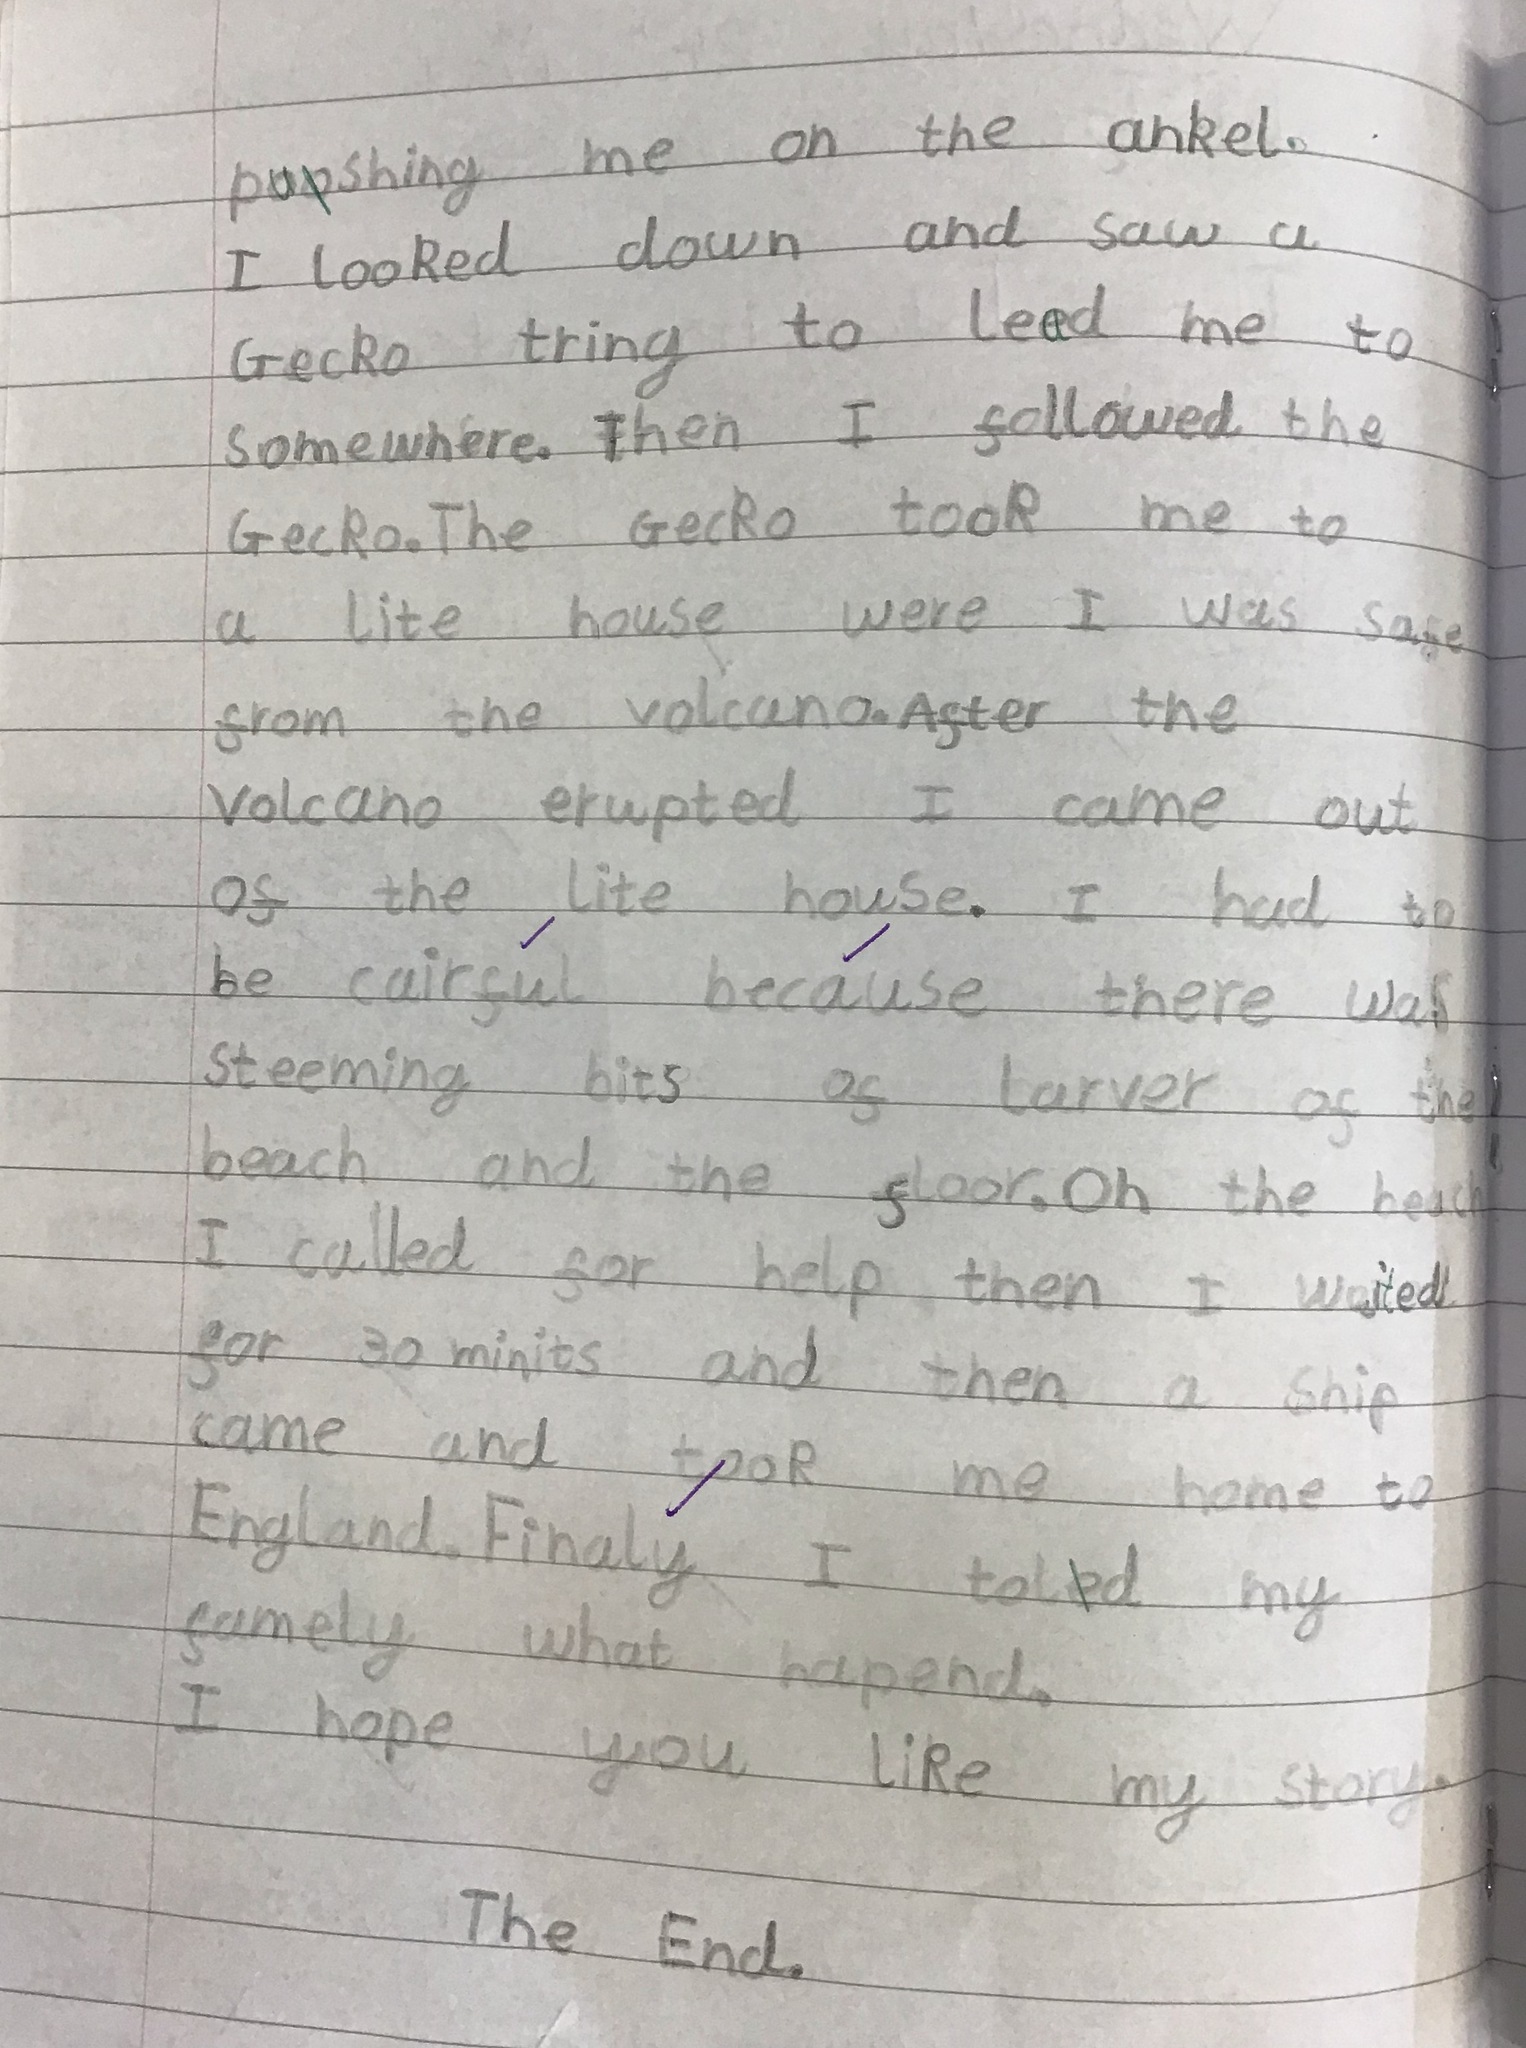 pupshing me on the ankel.
I looked down and saw a
Gecko tring to lead me to
somewhere. Then I followed the
Gecko. The Gecko took me to
a lite house were I was safe
from the volcano. After the
volcano erupted I came out
of the lite house. I had to
be cairful because there was
steeming bits of larver of the
beach and the floor. On the beach
I called for help then I waited
for 30 minits and then a ship
came and took me home to
England. Finaly I told my
famely what hapend.
I hope you like my story.
The End.